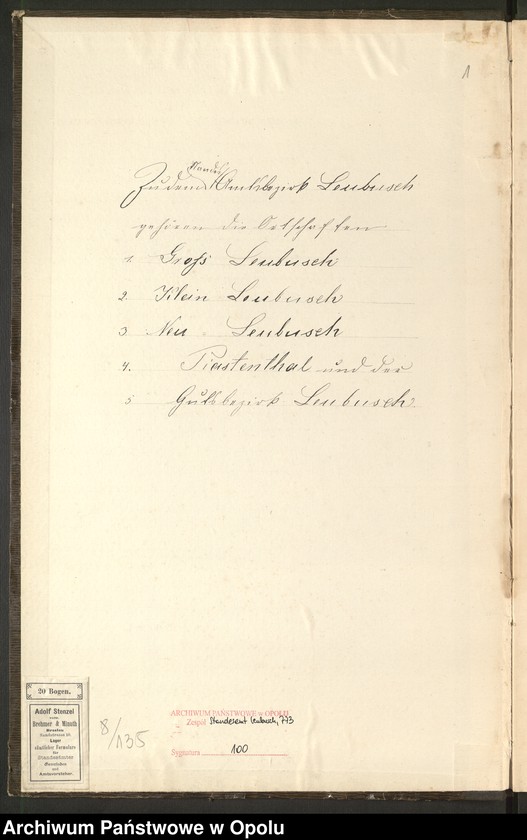 1
Standes
Zu dem Amtsbezirk Leubusch
gehören die Ortschaften
1. Groß Leubusch
2. Klein Leubusch
3 Neu Leubusch
4. Piastenthal und der
5 Gutsbezirk Leubusch.
20 Bogen.
Adolf Stenzel
vorm.
Brehmer & Minuth
Breslau
Lager
sämtlicher Formulare
für
Standesämter
und
Amtsvorsteher.
8/135
ARCHIWUM PAŃSTWOWE w OPOLU
Zespół Standesamt Leubusch, 773
Sygnatura 100
Archiwum Państwowe w Opolu